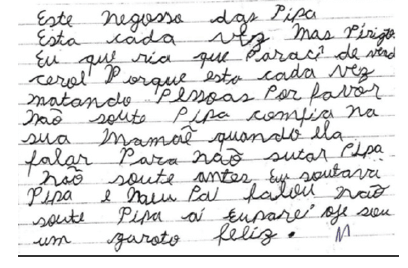 Este negosso das Pipa
Esta cada vez mas Pirigto
Eu que ria que Paraci de verd
cerol Porque esta cada vez
matando Pessoas Por favor
não soute Pipa comfia na
sua Mamãe quando ela
falar Para não sutar Pipa
não soute antes Eu soutava
Pipa e meu Pai falou não
soute Pipa aí Euparei oje sou
um garoto feliz.